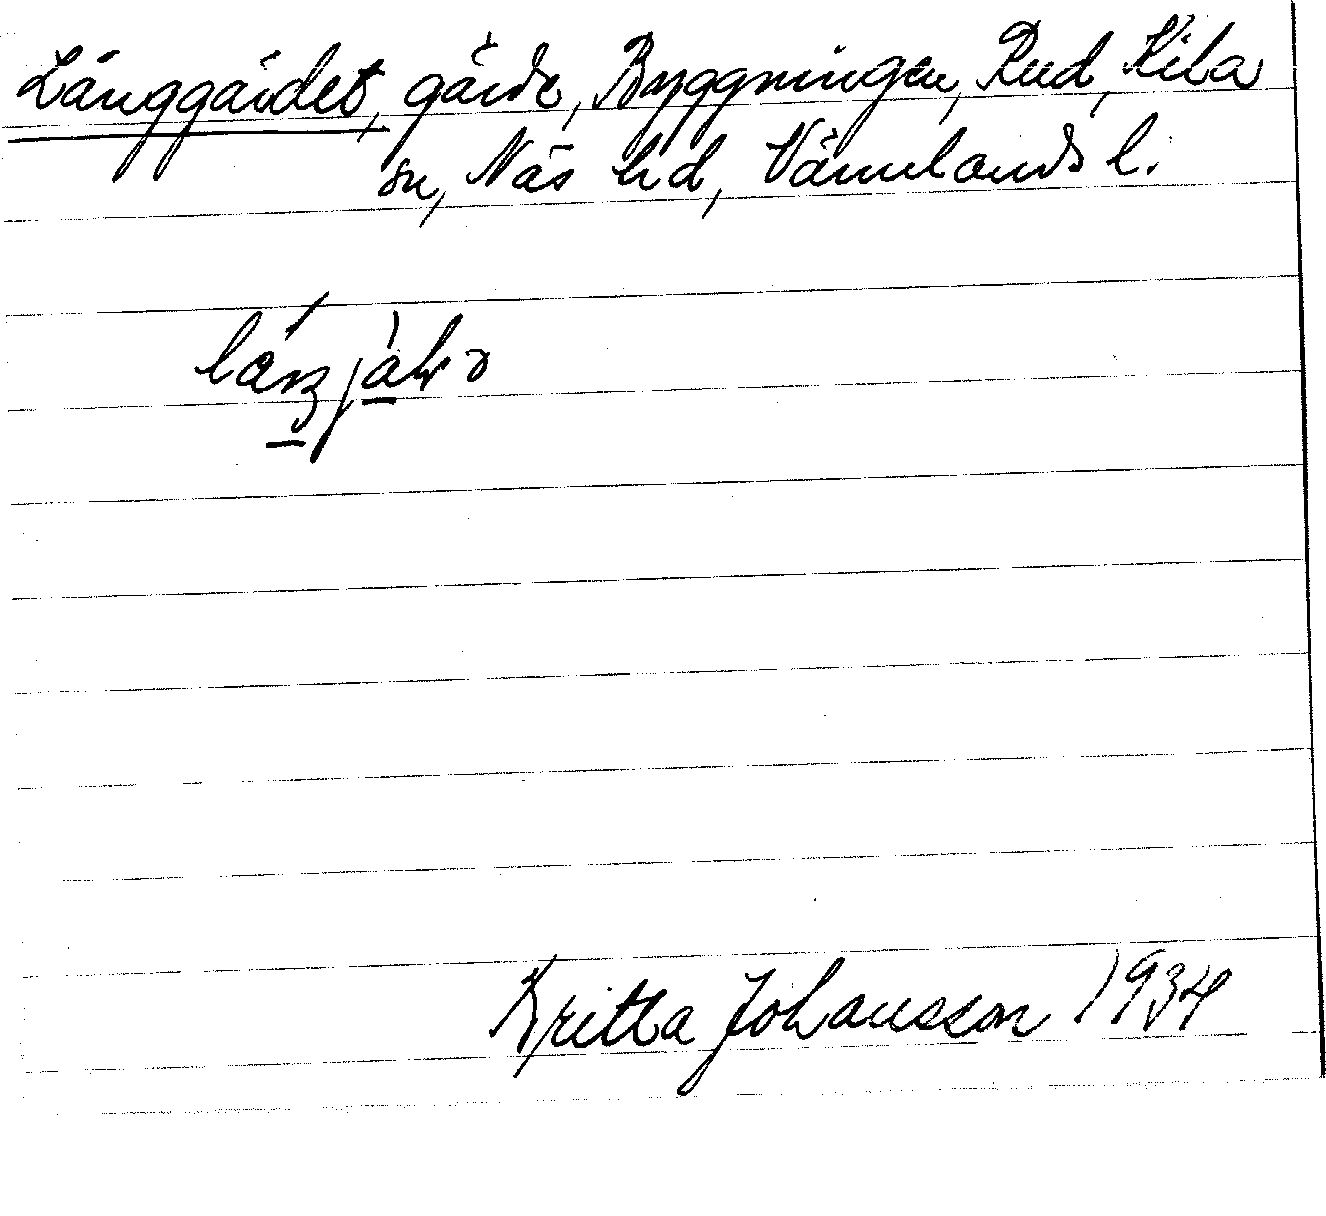 Långgärdet, gärde, Byggningen, Rud, Kila
sn, Näs hd, Värmlands l.
Britta Johansson 1934